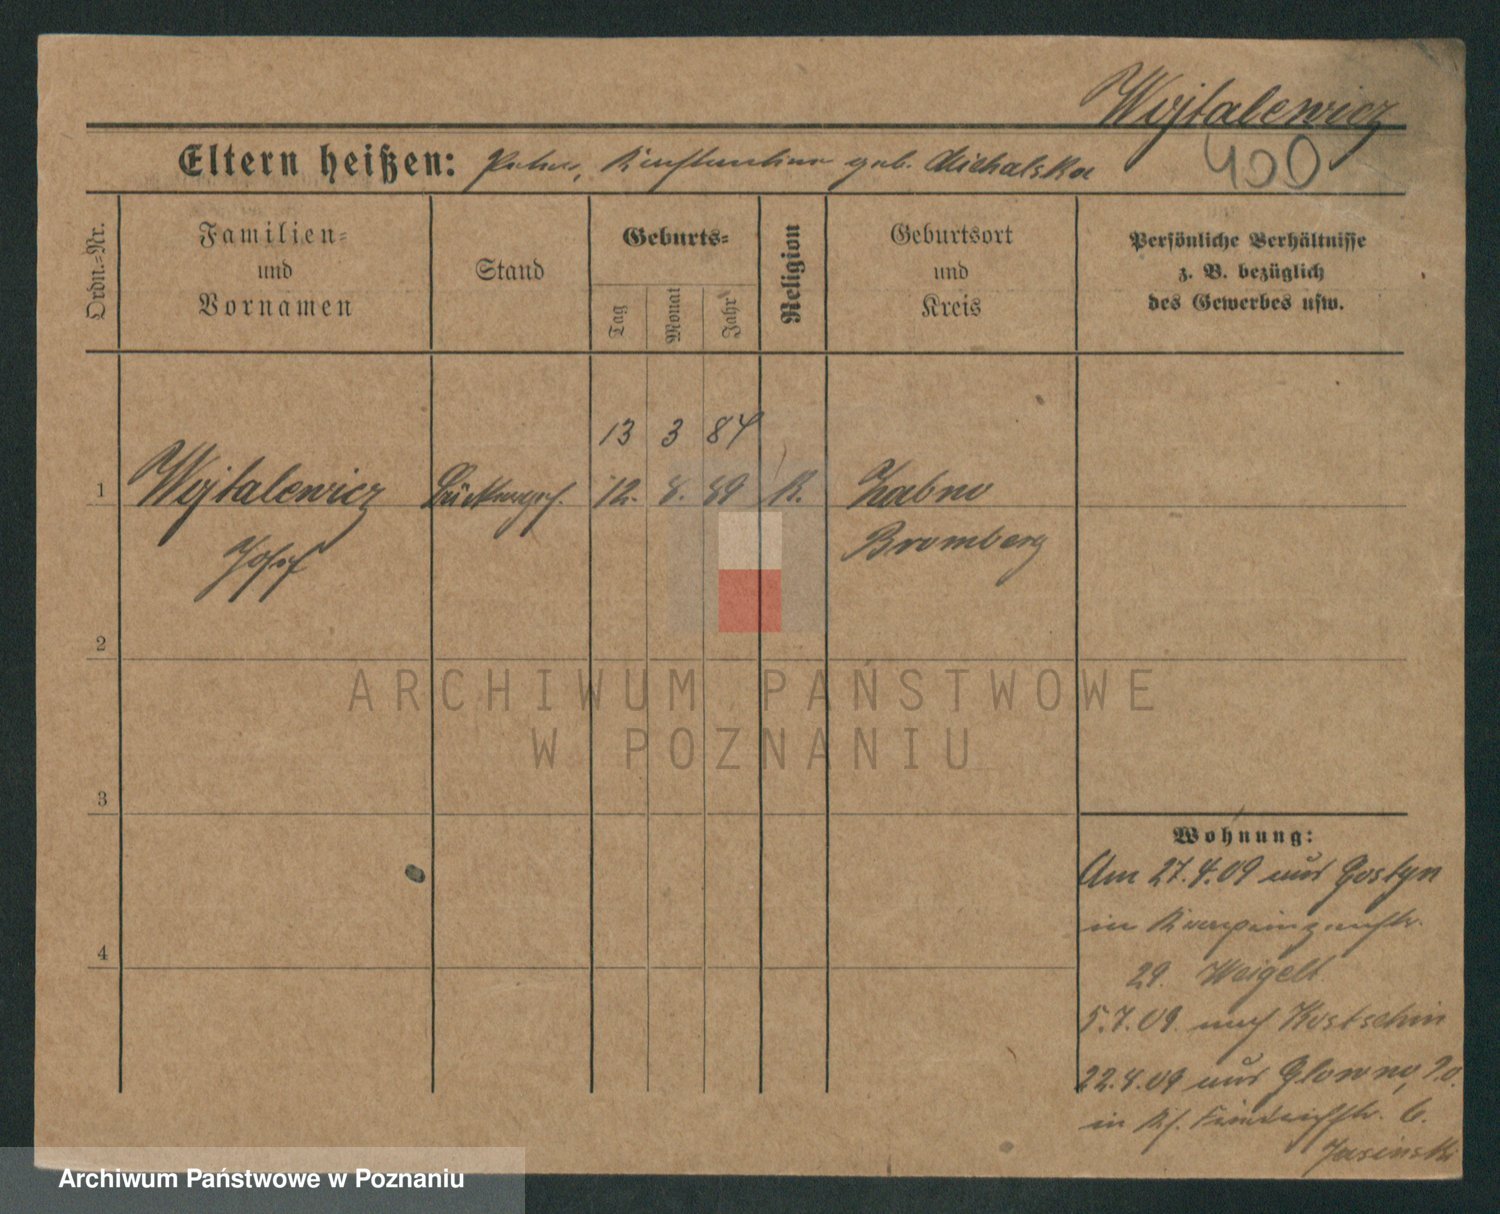 Wojtalewicz
400
Eltern heißen: Peter, Konstantina geb. Michalska
Ordn.-Nr.
Familien-
und
Vornamen
Stand
Geburts-
Tag
Monat
Jahr
Religion
Geburtsort
und
Kreis
Persönliche Verhältnisse
z. B. bezüglich
des Gewerbes usw.
13 3 84
1 Wojtalewicz 12. 8. 89 K. Zabno
Josef Bromberg
2
ARCHIWUM PAŃSTWOWE
W POZNANIU
3
Wohnung:
Am 27.4.09 aus Gostyn
in
29. Weigelt
5.7.09. nach Kostschin
22.4.09 aus Glowno,
4
in Friedrichstr. 6.
Jasinski
Archiwum Państwowe w Poznaniu